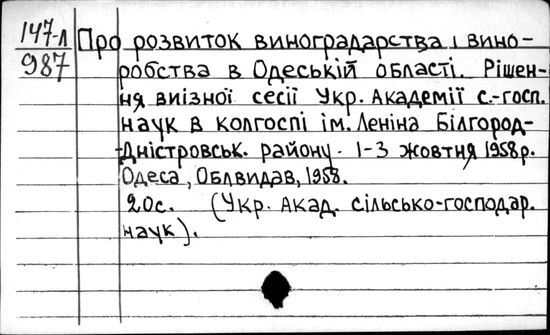 147-л
987
Про розвиток виноградарства і вино-
робства в Одеській області. Рішен-
ня виїзної сесії Укр. Академії с.-госп.
наук в колгоспі ім. Леніна Білгород-
Дністровськ. району. 1-3 жовтня 1958р.
Одеса, Облвидав, 1958.
20с. (Укр. Акад. сільсько-господар.
наук).